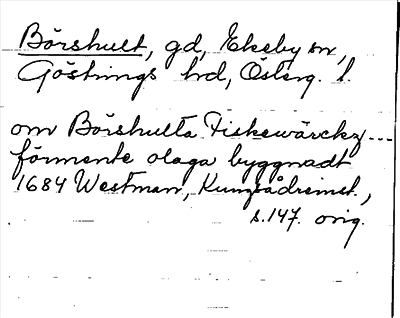 Börshult, gd, Ekeby sn,
Göstrings hrd, Österg. l.
om Börshulta Fiskewärckz...
förmente olaga byggnadt
1684 Westman, Kungsådreinst.,
s.147. orig.